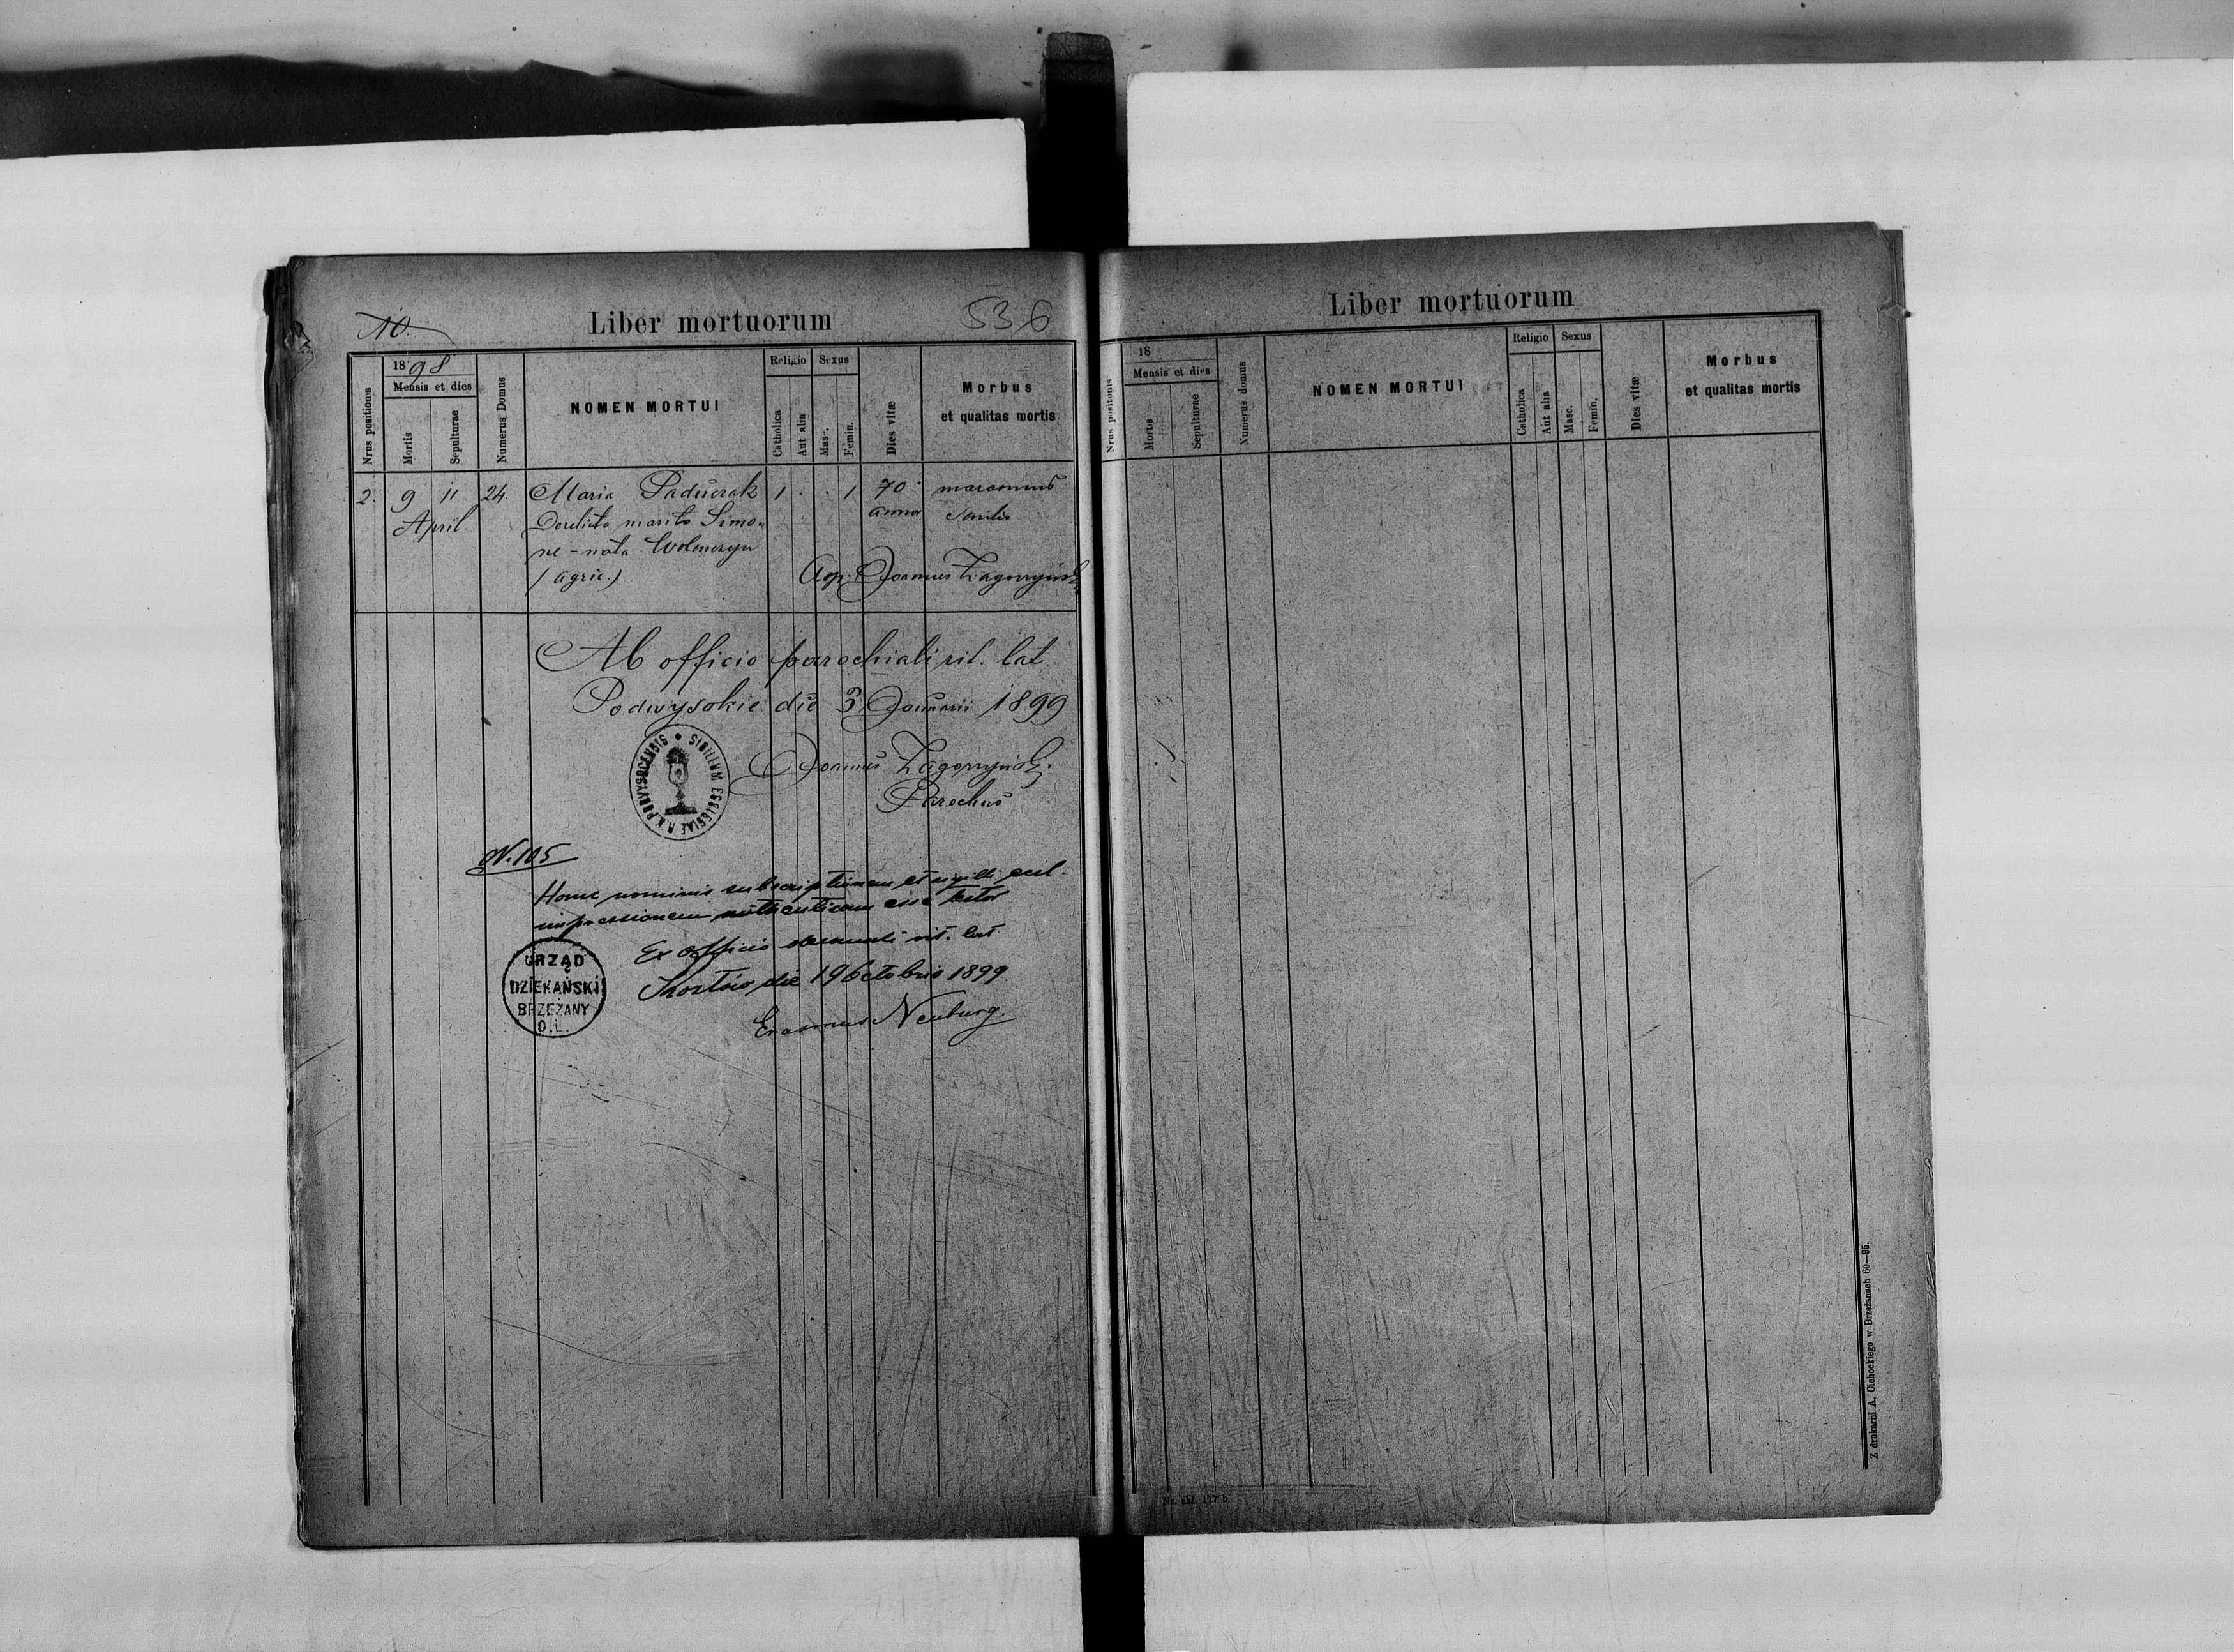 10.
Liber mortuorum
536
Nrus positionis
1898
Mensis et dies
Mortis
Sepulturae
Numerus Domus
NOMEN MORTUI
Religio
Catholica
Aut alia
Sexus
Masc.
Femin.
Dies vitæ
Morbus
et qualitas mortis
2. 9 11 24. Maria Paduczak 1 . . 1 70 marasmus
April anno senilis
marito Simo-
ne - nata
(agric.)
Joannes
Ab officio parochiali rit. lat.
Podwysokie die 3 Januarii 1899
Joannes
Parochus
SIGILLVM ECCLESIAE R.L. PODVYSOCENSIS
N. 105
Hanc nominis subscriptionem et sigilli eccl.
impressionem authenticam esse testor
Ex officio decanali rit. lat
die 19 Octobris 1899
Erasmus Neuburg.
URZĄD
DZIEKAŃSKI
BRZEŻANY
O.Ł.
Liber mortuorum
Nrus positonis
18
Mensis et dies
Mortis
Sepulturae
Numerus domus
NOMEN MORTUI
Religio
Catholica
Aut alia
Sexus
Masc.
Femin.
Dies vitæ
Morbus
et qualitas mortis
Z drukarni A. Cichockiego w Brzeżanach 60—95.
177 b.